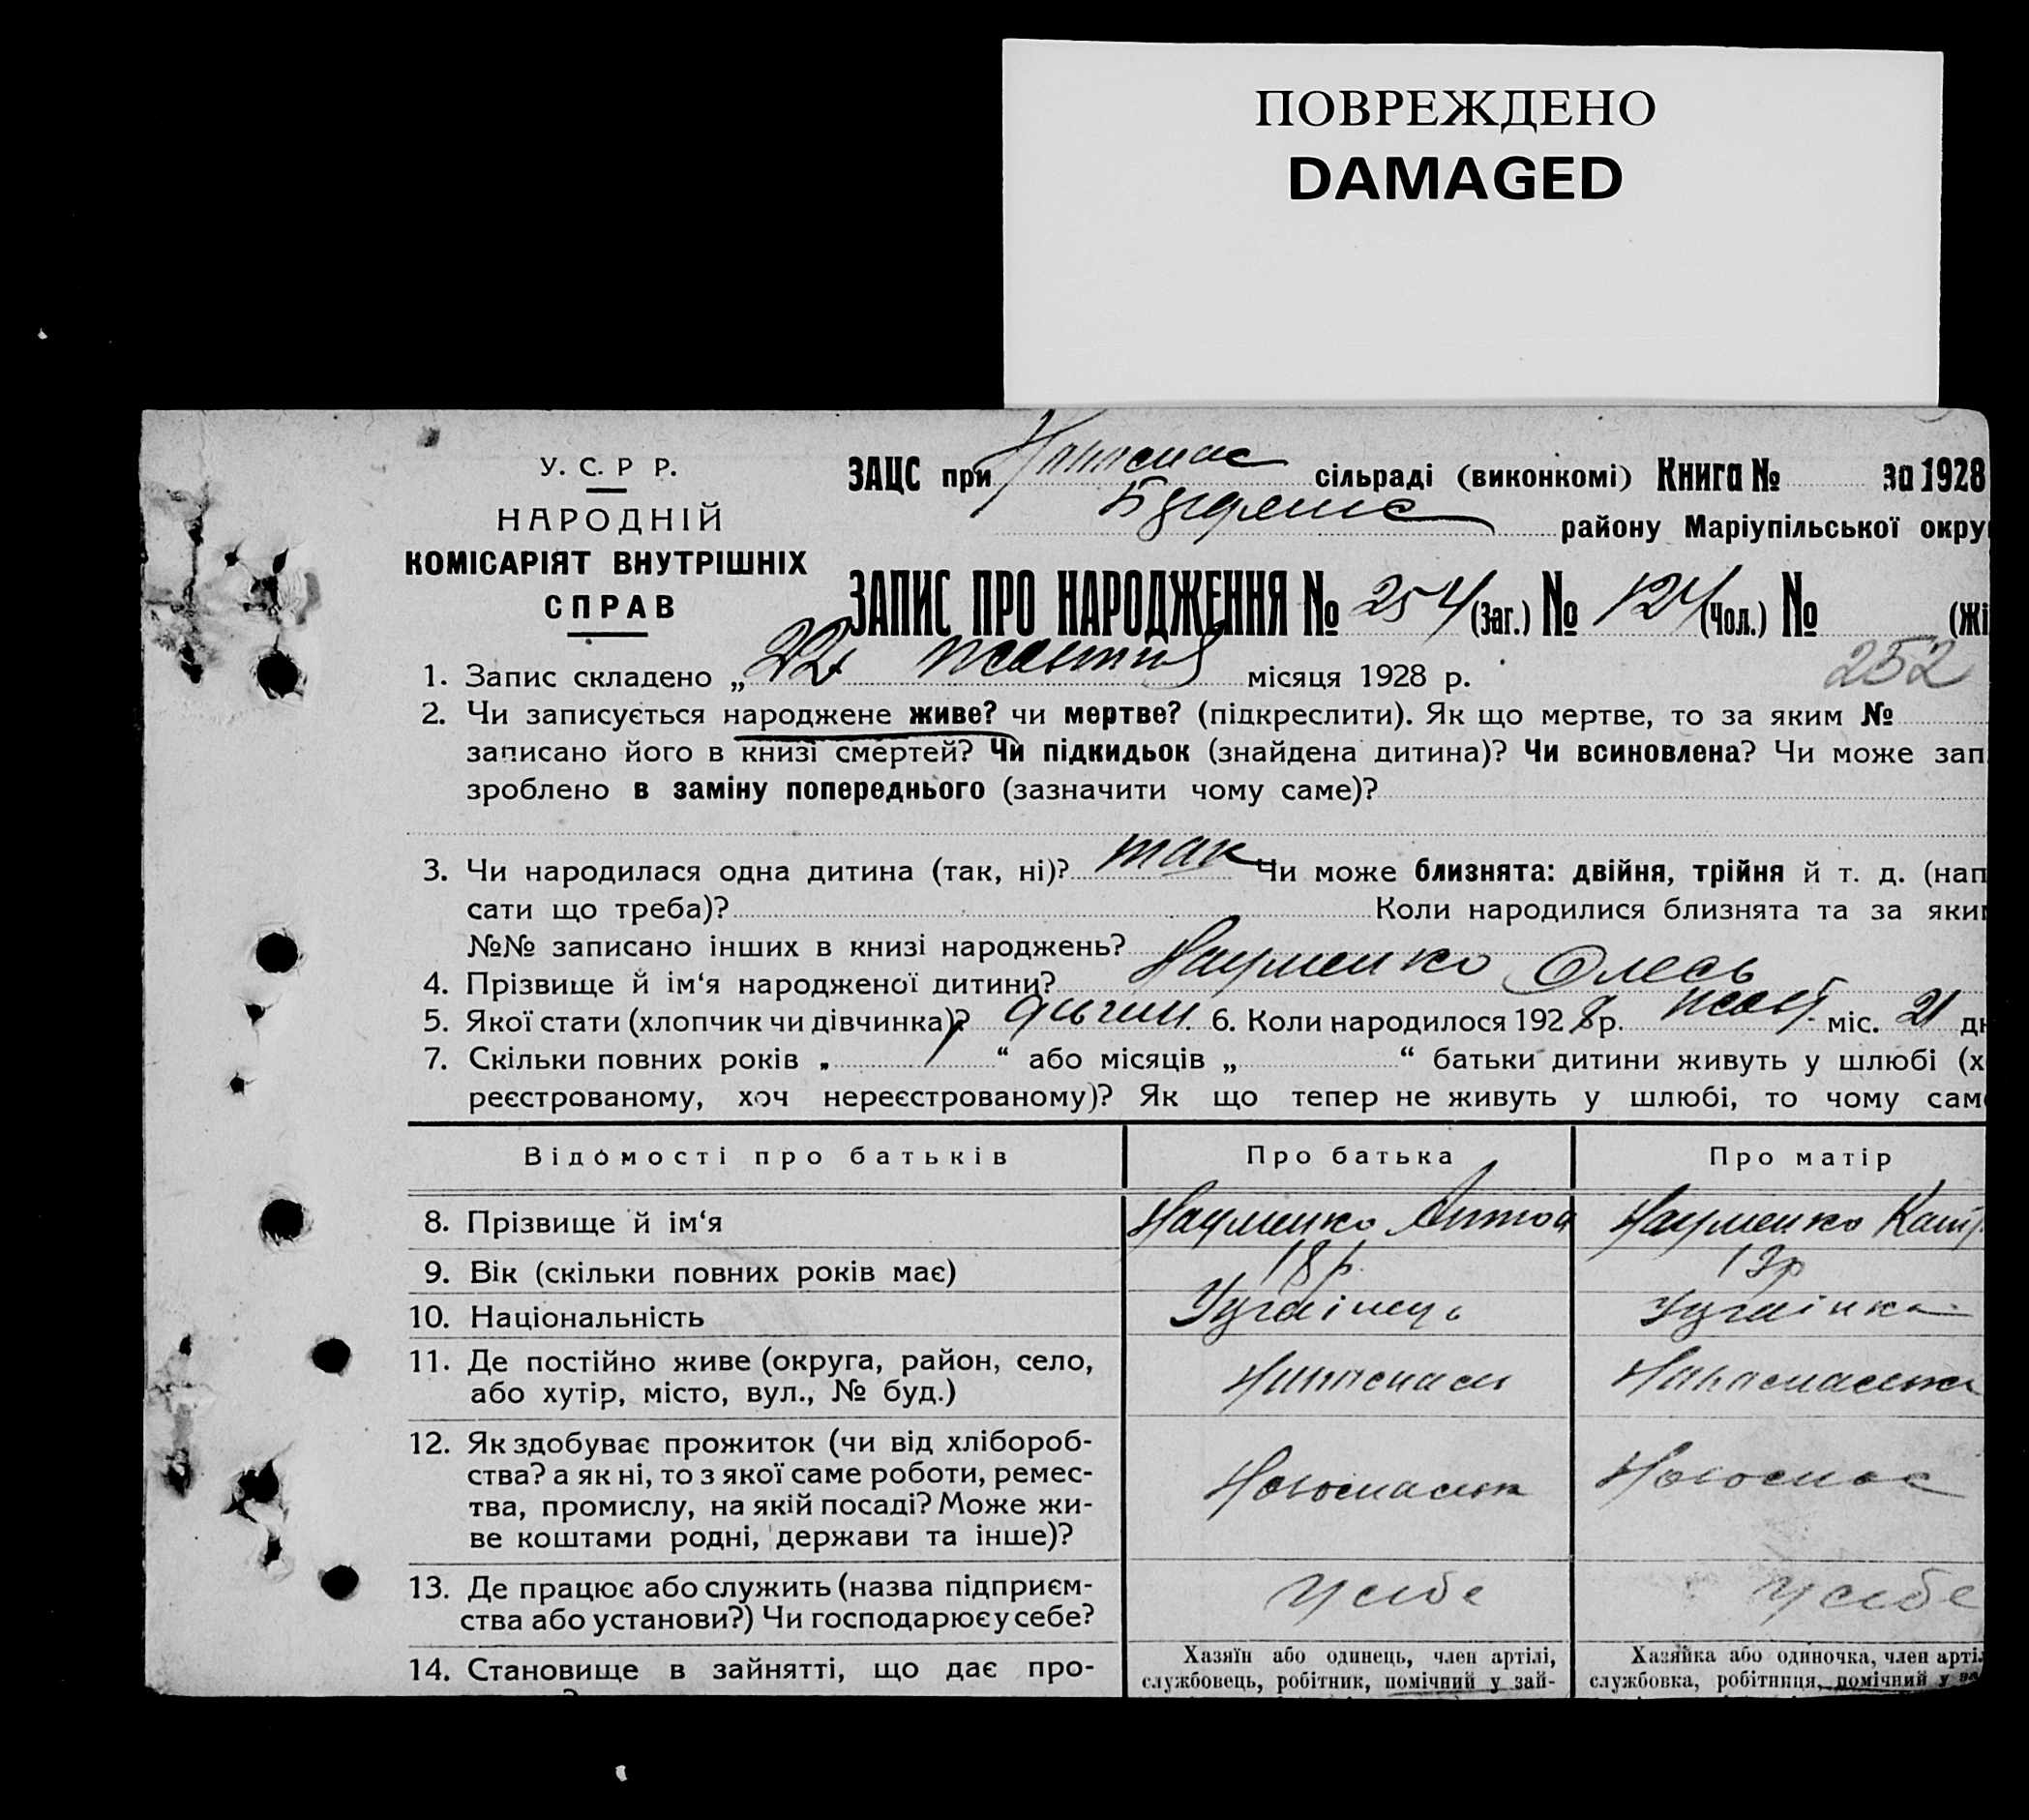 ПОВРЕЖДЕНО
DAMAGED
У. С. Р Р.
НАРОДНІЙ
КОМІСАРІЯТ ВНУТРІШНІХ
СПРАВ
ЗАЦС при сільраді (виконкомі) Книга № за 1928
району Маріупільської окру
ЗАПИС ПРО НАРОДЖЕННЯ № 254 (Заг.) № 124 (Чол.) № (Жі
252
1. Запис складено „ 22 жовтня місяця 1928 р.
2. Чи записується народжене живе? чи мертве? (підкреслити). Як що мертве, то за яким №
записано його в книзі смертей? Чи підкидьок (знайдена дитина)? Чи всиновлена? Чи може зап
зроблено в заміну попереднього (зазначити чому саме)?
3. Чи народилася одна дитина (так, ні)? так Чи може близнята: двійня, трійня й т. д. (нап
сати що треба)? Коли народилися близнята та за яки
№№ записано інших в книзі народжень?
4. Прізвище й ім‘я народженої дитини? Науменко Олесь
5. Якої стати (хлопчик чи дівчинка)? 6. Коли народилося 1928 р. жовт. міс. 21 дн
7. Скільки повних років „ “ або місяців „ “ батьки дитини живуть у шлюбі (х
реєстрованому, хоч нереєстрованому)? Як що тепер не живуть у шлюбі, то чому сам
Відомості про батьків Про батька Про матір
8. Прізвище й ім‘я Науменко Антон Науменко Кат
9. Вік (скільки повних років має) 18 р.
10. Національність Українець Українка
11. Де постійно живе (округа, район, село,
або хутір, місто, вул., № буд.)
12. Як здобуває прожиток (чи від хлібороб-
ства? а як ні, то з якої саме роботи, ремес-
тва, промислу, на якій посаді? Може жи-
ве коштами родні, держави та інше)?
13. Де працює або служить (назва підприєм-
ства або установи?) Чи господарює у себе? У себе У себе
14. Становище в зайнятті, що дає про-
Хазяїн або одинець, член артілі,
службовець, робітник, помічний у зай-
Хазяйка або одиночка, член арті
службовка, робітниця, помічний у за